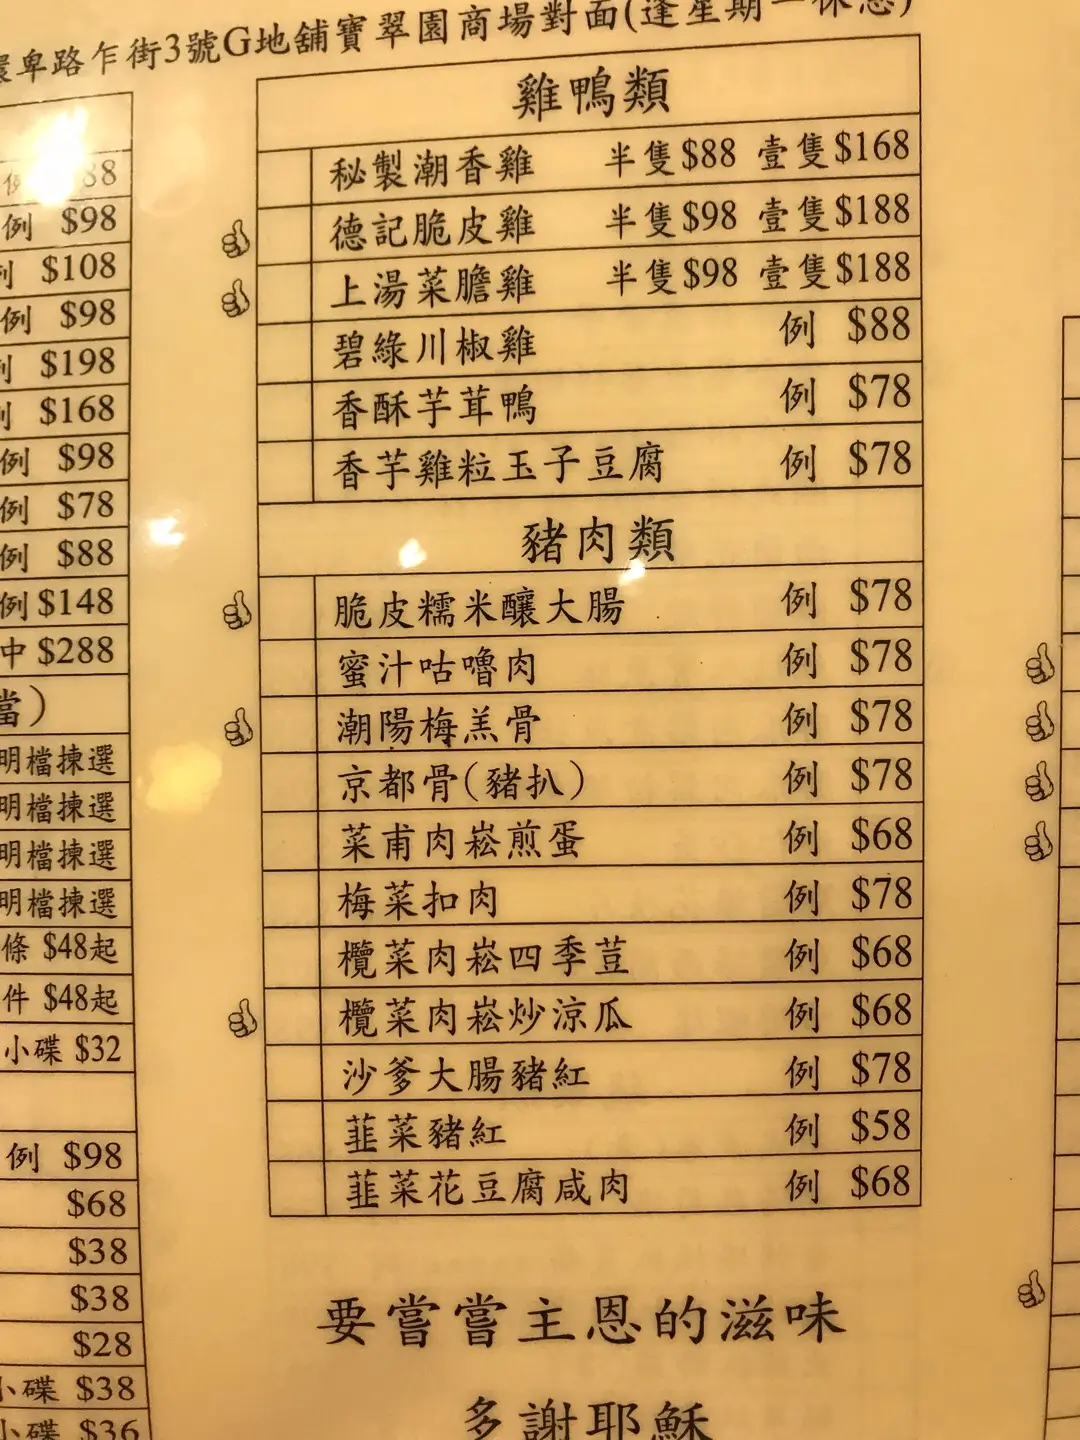 卑路乍街3號G地舖寶翠園商場對面(逢星期一休息)
雞鴨類
秘製潮香雞 半隻$88 壹隻$168
德記脆皮雞 半隻$98 壹隻$188
上湯菜膽雞 半隻$98 壹隻$188
碧綠川椒雞 例 $88
香酥芋茸鴨 例 $78
香芋雞粒玉子豆腐 例 $78
豬肉類
脆皮糯米釀大腸 例 $78
蜜汁咕嚕肉 例 $78
潮陽梅羔骨 例 $78
京都骨(豬扒) 例 $78
菜甫肉崧煎蛋 例 $68
梅菜扣肉 例 $78
欖菜肉崧四季荳 例 $68
欖菜肉崧炒涼瓜 例 $68
沙爹大腸豬紅 例 $78
韮菜豬紅 例 $58
韮菜花豆腐咸肉 例 $68
要嘗嘗主恩的滋味
多謝耶穌
例 $98
$108
例 $98
$198
$168
例 $98
例 $78
例 $88
例 $148
中 $288
明檔揀選
明檔揀選
明檔揀選
明檔揀選
條 $48起
件 $48起
小碟 $32
例 $98
$68
$38
$38
$28
小碟 $38
小碟 $36